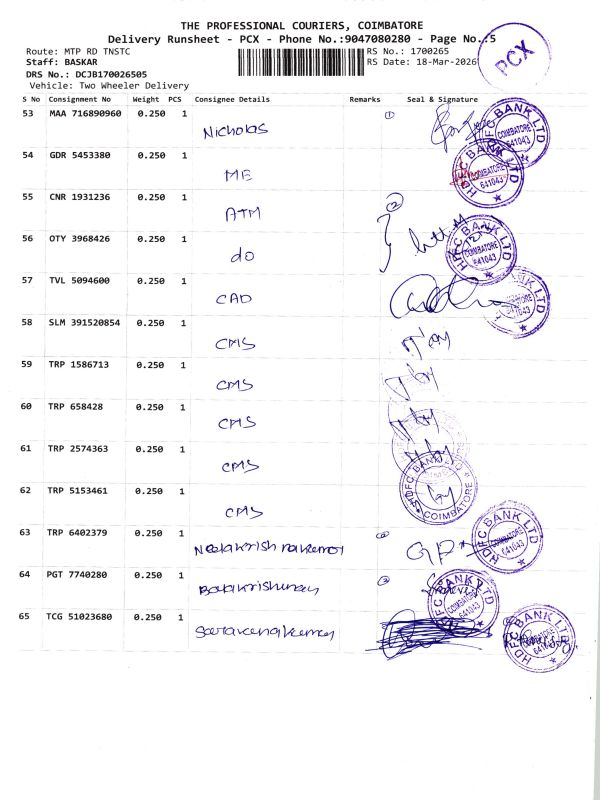 THE PROFESSIONAL COURIERS, COIMBATORE
Delivery Runsheet - PCX - Phone No.:9047080280 - Page No.:5
PCX
Route: MTP RD TNSTC
RS No.: 1700265
Staff: BASKAR
RS Date: 18-Mar-2026
DRS No.: DCJB170026505
Vehicle: Two Wheeler Delivery
S No Consignment No Weight PCS Consignee Details Remarks Seal & Signature
53 MAA 716890960 0.250 1 Nicholas 1
HDFC BANK LTD COIMBATORE 641043
54 GDR 5453380 0.250 1 ME
HDFC BANK LTD COIMBATORE 641043
55 CNR 1931236 0.250 1 ATM 2
56 OTY 3968426 0.250 1 do
HDFC BANK LTD COIMBATORE 641043
57 TVL 5094600 0.250 1 CAD
BANK LTD 641043
58 SLM 391520854 0.250 1 CMS
59 TRP 1586713 0.250 1 CMS
60 TRP 658428 0.250 1 CMS
61 TRP 2574363 0.250 1 CMS
62 TRP 5153461 0.250 1 CMS
HDFC BANK COIMBATORE
63 TRP 6402379 0.250 1
HDFC BANK LTD COIMBATORE 641043
64 PGT 7740280 0.250 1
HDFC BANK LTD COIMBATORE 641043
65 TCG 51023680 0.250 1
HDFC BANK LTD COIMBATORE 641043